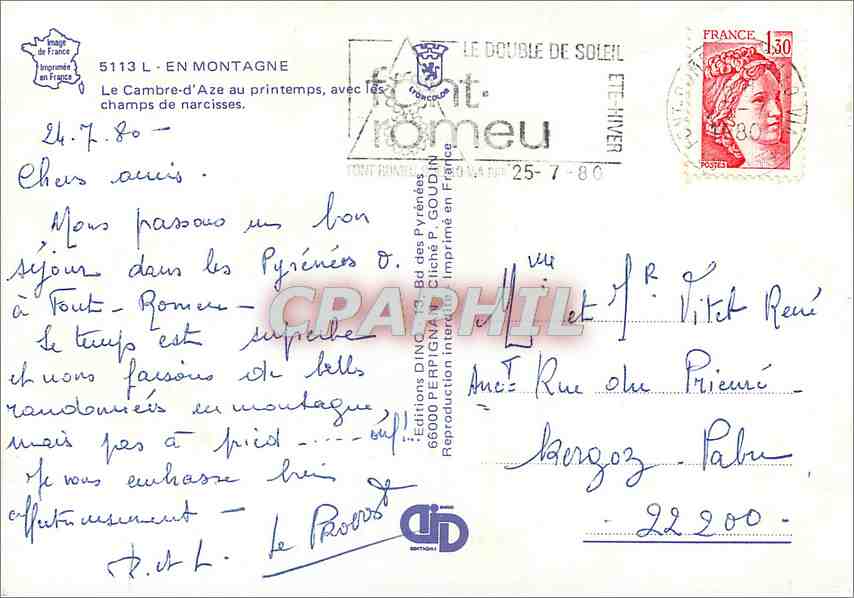 Image
de France
Imprimée
en France
5113 L - EN MONTAGNE
Le Cambre-d'Aze au printemps, avec les
champs de narcisses.
24.7.80 -
Chers amis.
Nous passons un bon
séjour dans les Pyrénées O.
à Font-Romeu -
Le temps est superbe
et nous faisons de belles
randonnées en montagne,
mais pas à pied ..... ouf!!
Je vous embrasse bien
affectueusement -
R. et L. Le Provost
LE DOUBLE DE SOLEIL
ETE-HIVER
font-
romeu
LYONCOLOR
FONT ROMEU
25-7-80
FRANCE 1,30
POSTES
80
Editions DINO, 13, Bd des Pyrénées
66000 PERPIGNAN - Cliché P. GOUDIN
Reproduction interdite - Imprimé en France
CPARPHIL
EDITIONS
Mme et Mr Vitet René
Anct Rue du Prieuré
Kergoz - Pabu
- 22200 -